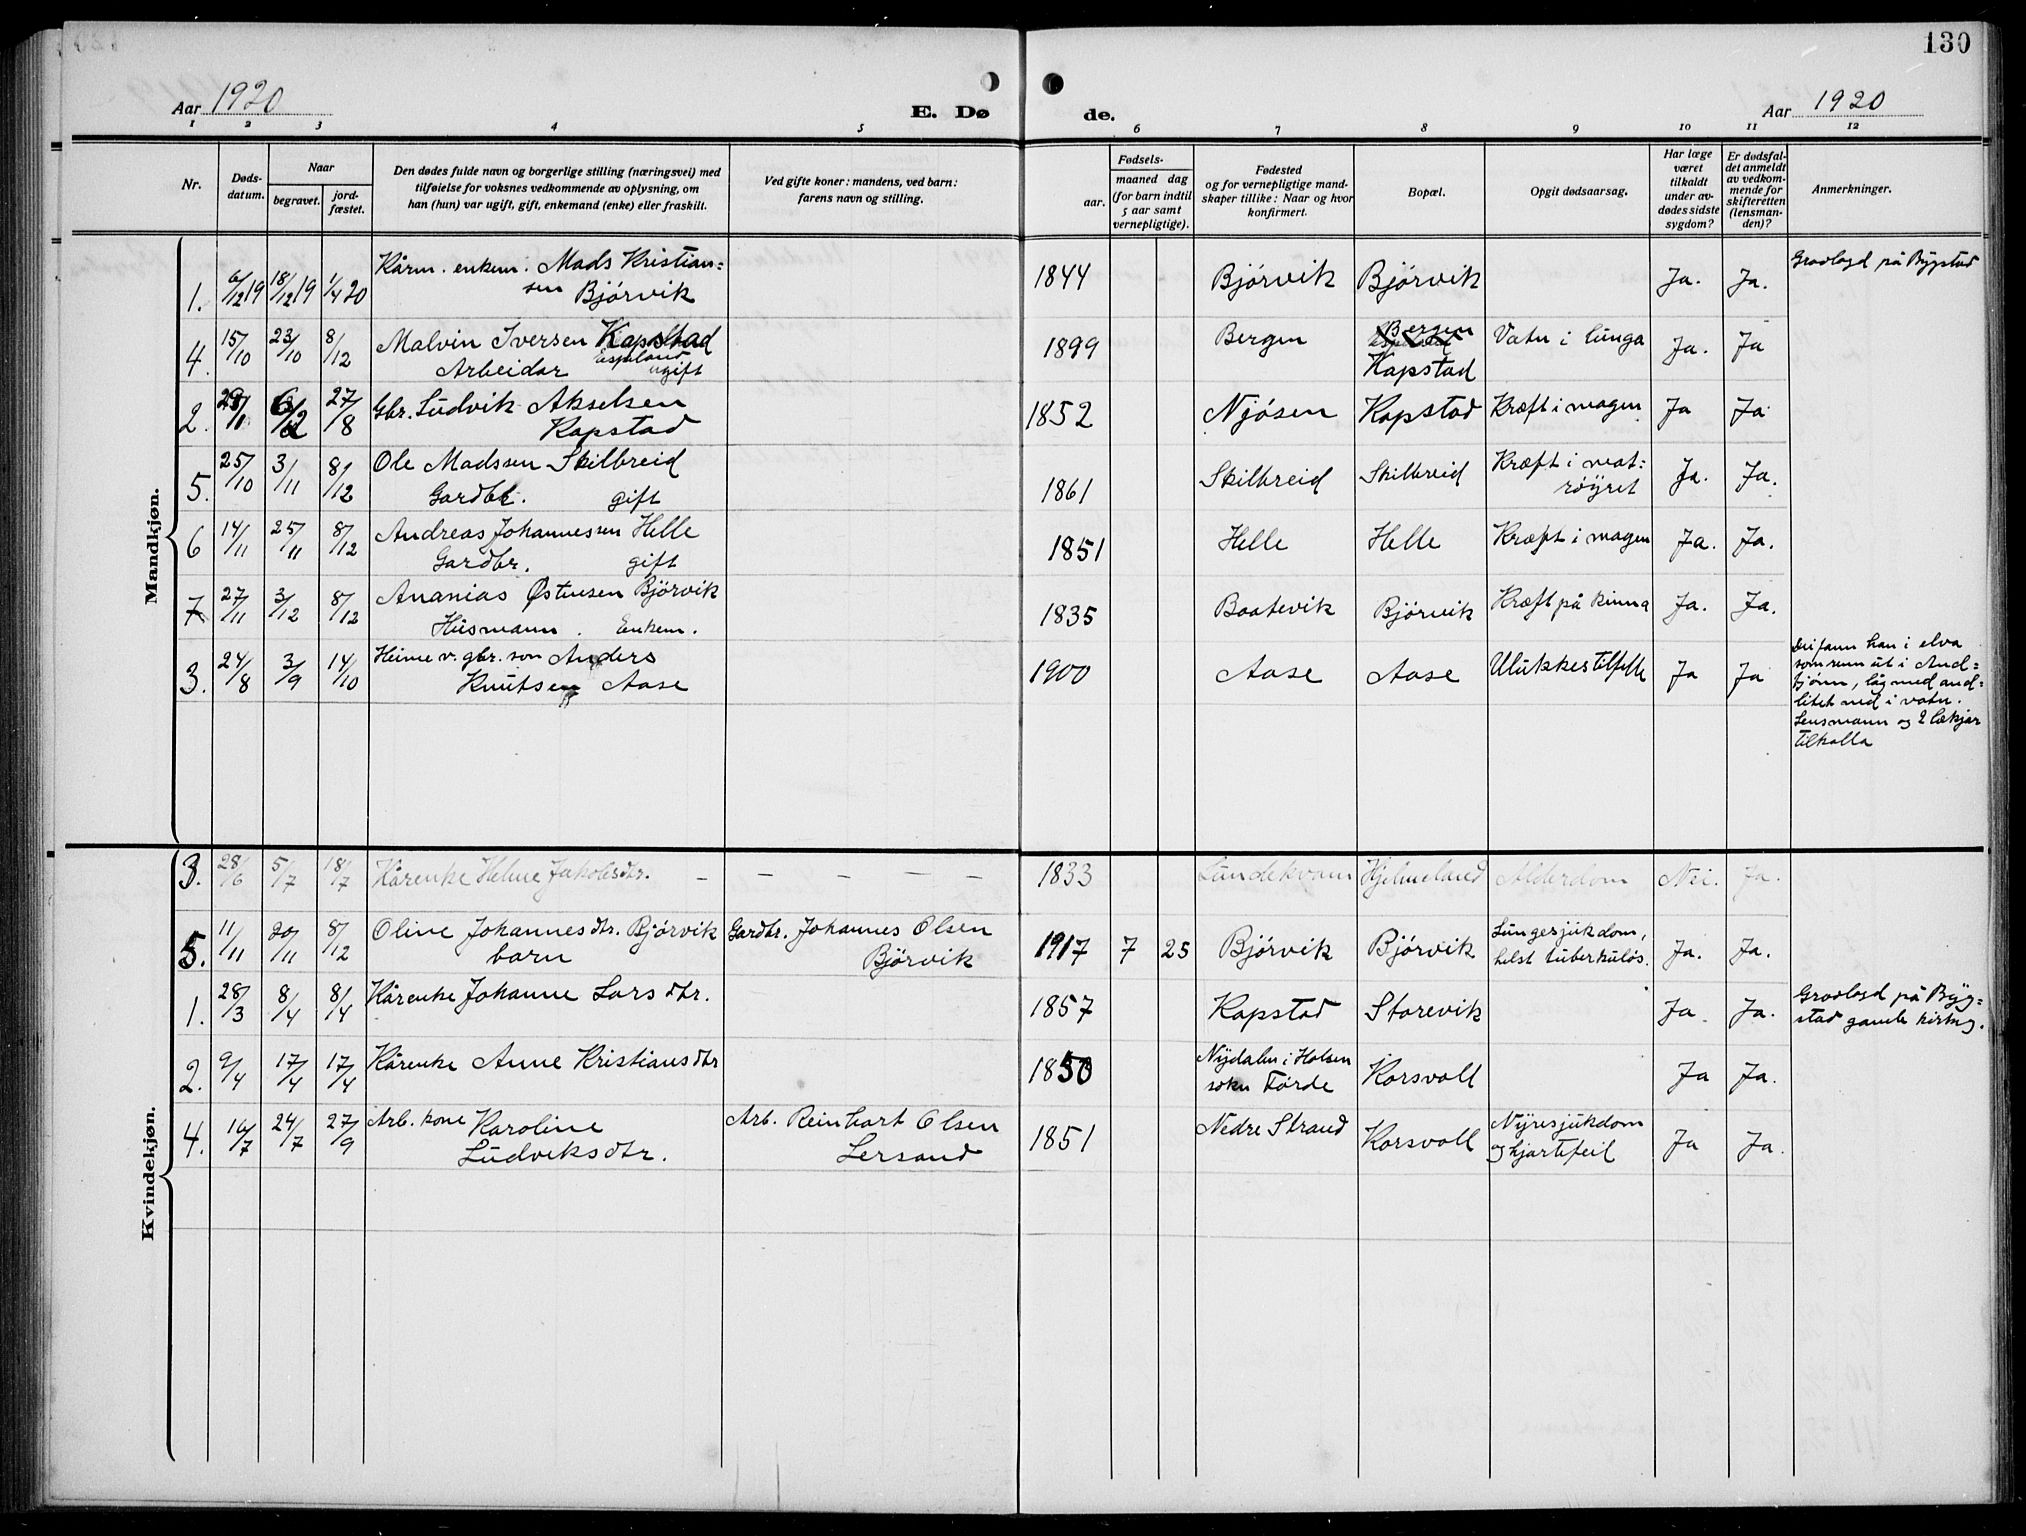 130
Aar 1920 E. Dø
de. Aar 1920
1 2 3 4 5 6 7 8 9 10 11 12
Nr. Døds-datum. Naar begravet. jord-fæstet. Den dødes fulde navn og borgerlige stilling (næringsvei) med tilføielse for voksnes vedkommende av oplysning, om han (hun) var ugift, gift, enkemand (enke) eller fraskilt. Ved gifte koner: mandens, ved barn: farens navn og stilling.
Fødsels- aar. maaned dag (for barn indtil 5 aar samt vernepligtige). Fødested og for vernepligtige mand-skaper tillike: Naar og hvor konfirmert. Bopæl. Opgit dødsaarsag. Har læge været tilkaldt under av-dødes sidste sygdom? Er dødsfal-det anmeldt av vedkom-mende for skifteretten (lensman-den)? Anmerkninger.
Mandkjøn.
1. 6/12 19 18/12 19 1/4 20 Kårm. enkem. Mads Kristian=sen Bjórvik 1844 Bjórvik Bjórvik Ja. Ja. Gravlagd på Bygstad
4. 15/10 23/10 8/12 Malvin Iversen Kapstad Espeland Arbeidar ugift 1899 Bergen Bergen Kapstad Vatn i lunga Ja. Ja
2. 6/2 27/8 Gbr. Ludvik Akselsen Kapstad 1852 Njósen Kapstad Kræft i magen Ja Ja
5. 25/10 3/11 8/12 Ole Madssen Skilbreid Gardbr. gift 1861 Skilbreid Skilbreid Kræft i mat=røyret Ja. Ja.
6 14/11 25/11 8/12 Andreas Johannessen Helle Gardbr. gift 1851 Helle Helle Kræft i magen Ja. Ja.
7 27/11 3/12 8/12 Ananias Østensen Bjórvik Husmann. Enkem. 1835 Baatevik Bjórvik Kræft på kinna Ja. Ja.
3. 24/8 3/9 14/10 Heime v. gbr. son Anders Knutsen Aase 1900 Aase Aase Ulukkestilfelle Ja Ja Dei fann han i elva som renn ut i And=tjønn, låg med and=litet ned i vatn. Lensmann og 2 lækjar tilkalla
Kvindekjøn.
3. 28/6 5/7 18/7 Kårenke Helene Jakobsdtr. – – – – – 1833 Lundekvam Hjelmeland Alderdom Nei. Ja.
5. 11/11 20/11 8/12 Oline Johannesdtr. Bjórvik barn Gardbr. Johannes Olsen Bjórvik 1917 7 25 Bjórvik Bjórvik Lungesjukdom, helst tuberkulós. Ja. Ja.
1. 28/3 8/4 8/4 Kårenke Johanne Larsdtr. 1857 Kapstad Storevik Ja Ja. Gravlagd på Byg=stad gamle kirkeg.
2. 9/4 17/4 17/4 Kårenke Anne Kristiansdtr 1850 Nydalen i Holsen sokn Førde Korsvoll Ja Ja.
4. 16/7 24/7 27/9 Arb. kone Karoline Ludviksdtr. Arb. Reinhart Olsen Lersand 1851 Nedre Strand Korsvoll Nyresjukdom og hjartefeil Ja Ja.